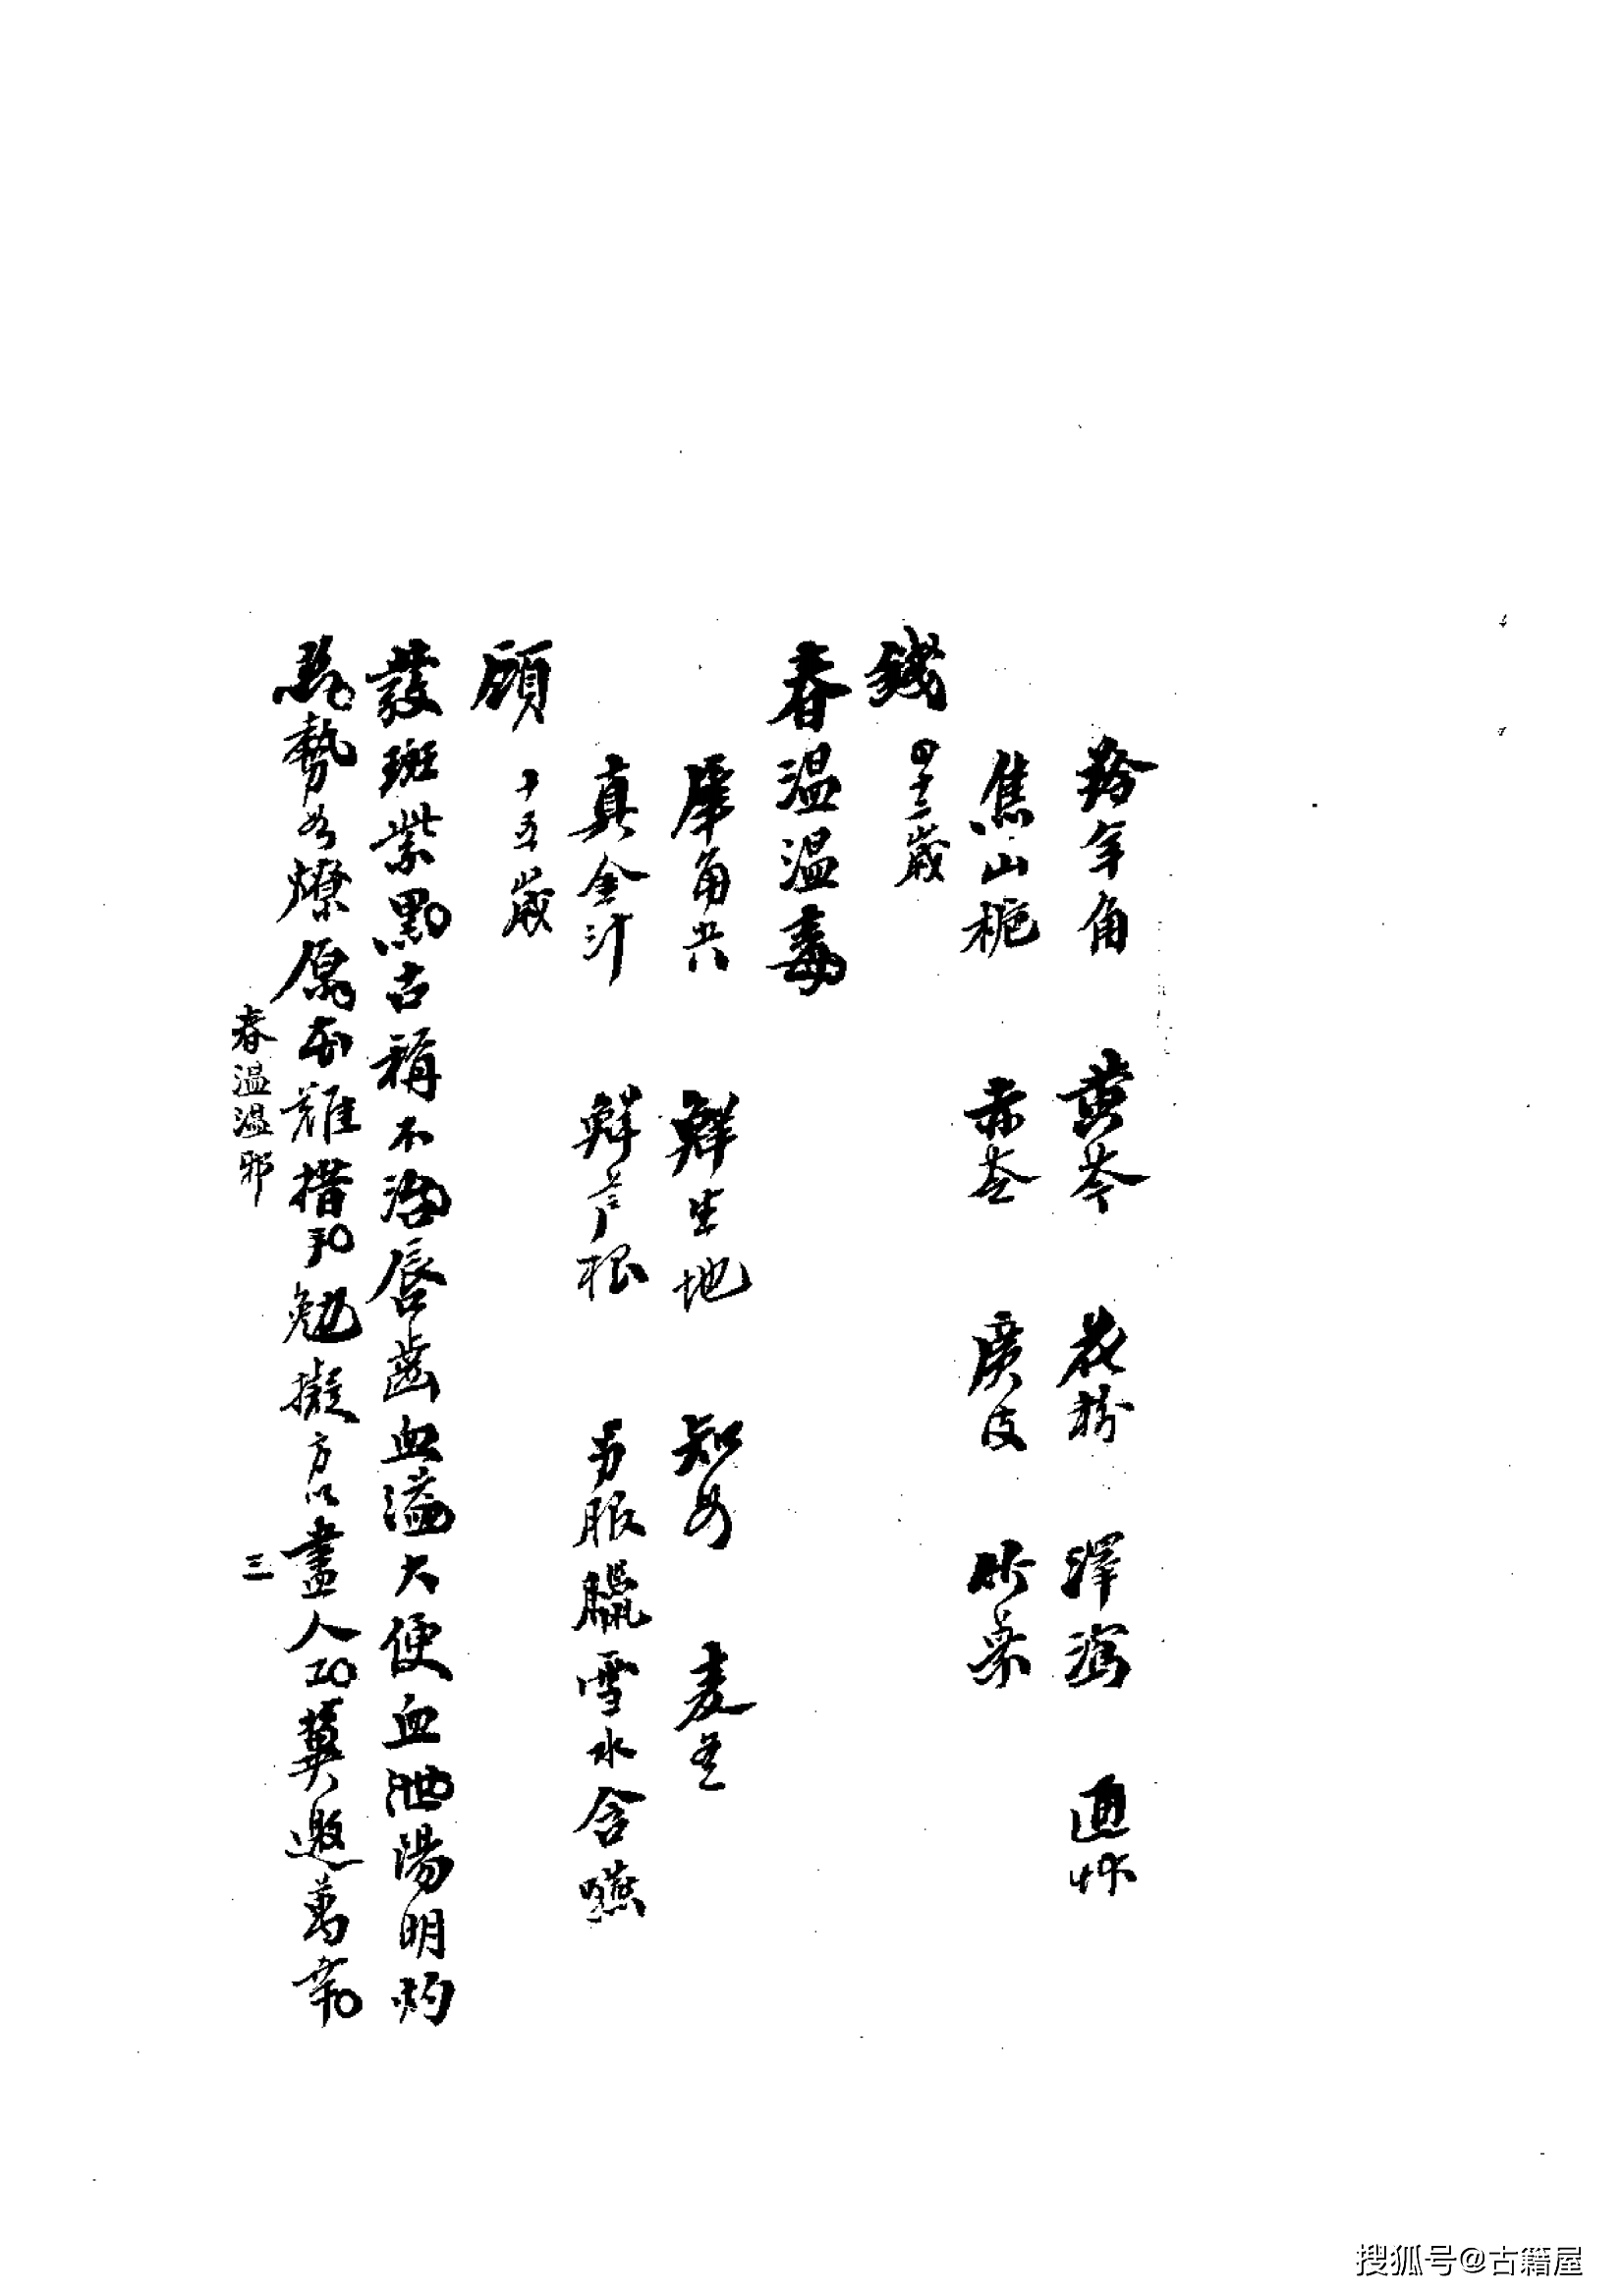 羚羊角 黄芩 花粉 澤瀉 通艸
焦山梔 赤苓 廣皮 竹葉
錢 四十二歲
春温温毒
犀角尖 鮮生地 知母 麦冬
真金汁 鮮芦根 另服臘雪水含嚥
顧 十五歲
發斑紫黑古稱不治唇齒血溢大便血泄陽明灼
熱勢如燎原亦難措手勉擬方以盡人工冀邀萬幸
春温温邪 三
搜狐号@古籍屋